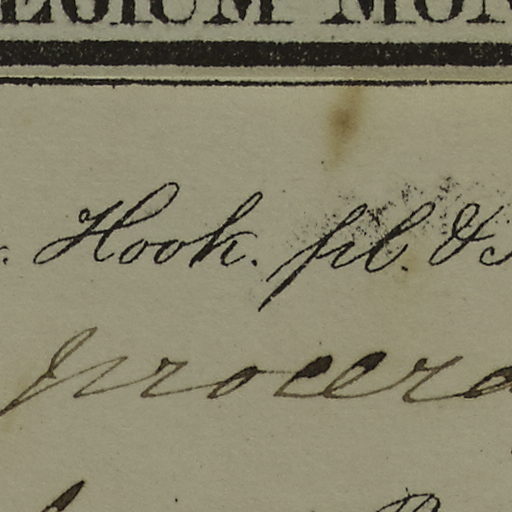 EGIUM MON
. Hook. fil. & 
procera